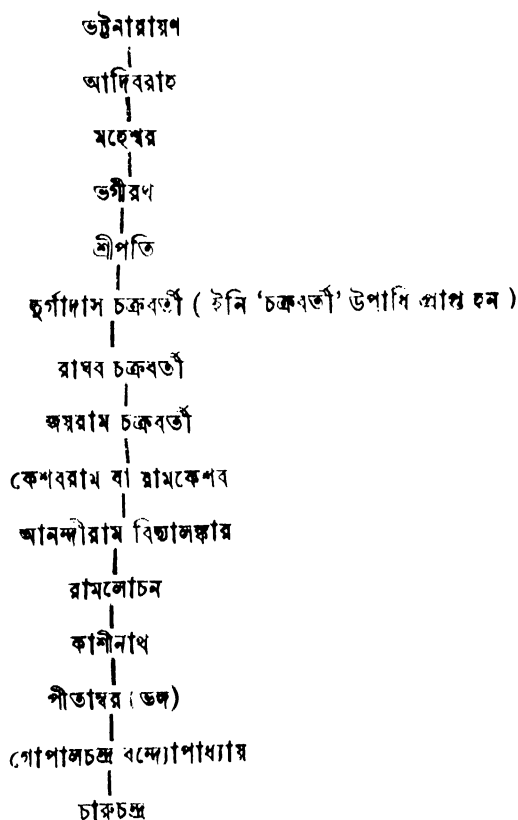 ভট্টনারায়ণ
আদিবরাহ
মহেশ্বর
ভগীরথ
শ্রীপতি
দুর্গাদাস চক্রবর্তী ( ইনি ‘চক্রবর্তী’ উপাধি প্রাপ্ত হন )
রাঘব চক্রবর্তী
জয়রাম চক্রবর্তী
কেশবরাম বা রামকেশব
আনন্দীরাম বিদ্যালঙ্কার
রামলোচন
কাশীনাথ
পীতাম্বর (ভঙ্গ)
গোপালচন্দ্র বন্দ্যোপাধ্যায়
চারুচন্দ্র